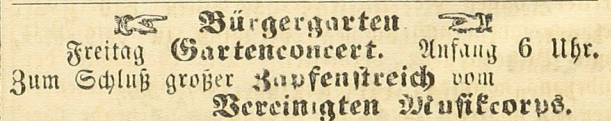 Bürgergarten
Freitag Gartenconcert. Anfang 6 Uhr.
Zum Schluß großer Zapfenstreich vom
Vereinigten Musikcorps.